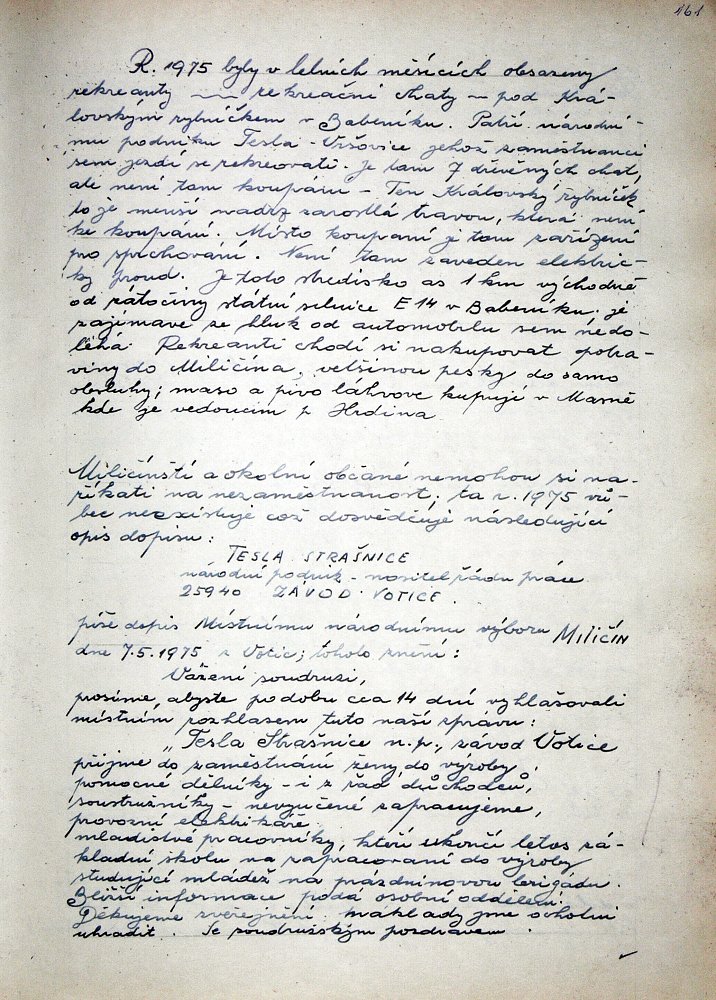 461
R. 1975 byly v letních měsících obsazeny
rekreanty rekreační chaty – pod Krá-
lovským rybníčkem v Babeníku. Patří národní-
mu podniku Tesla - Vršovice jehož zaměstnanci
sem jezdí se rekreovati. Je tam 7 dřevěných chat,
ale není tam koupání – Ten Královský rybníček
to je menší nádrž zarostlá travou, která není
ke koupání. Místo koupaní je tam zařízení
pro sprchování. Není tam zaveden elektric-
ký proud. Je toto středisko as 1 km východně
od zátočiny státní silnice E 14 v Babeníku. je
zajímavé že hluk od automobilu sem nedo-
léhá. Rekreanti chodí si nakupovat potra-
viny do Miličína, většinou pěšky do samo
obsluhy; maso a pivo láhvové kupují v Masně
kde je vedoucím p Hrdina
Miličínští a okolní občané nemohou si na-
říkati na nezaměstnanost; ta r. 1975 vů-
bec neexistuje což dosvědčuje následující
opis dopisu:
TESLA STRAŠNICE
národní podnik - nositel řádu práce
25940 ZÁVOD VOTICE.
píše dopis Místnímu národnímu výboru MILIČÍN
dne 7.5.1975 z Votic; tohoto znění:
Vážení soudruzi,
prosíme, abyste po dobu cca 14 dní vyhlašovali
místním rozhlasem tuto naší zprávu:
„Tesla Strašnice n.p., závod Votice
příjme do zaměstnání ženy do výroby,
pomocné dělníky - i z řad důchodců,
soustružníky - nevyučené zapracujeme,
provozní elektrikáře
mladistvé pracovníky, kteří ukončí letos zá-
kladní školu na zapracovaní do výroby
studující mládež na prázdninovou brigádu.
Bližší informace podá osobní oddělení.
Děkujeme zveřejnění náklady jme ochotni
uhradit. Se soudružským pozdravem.